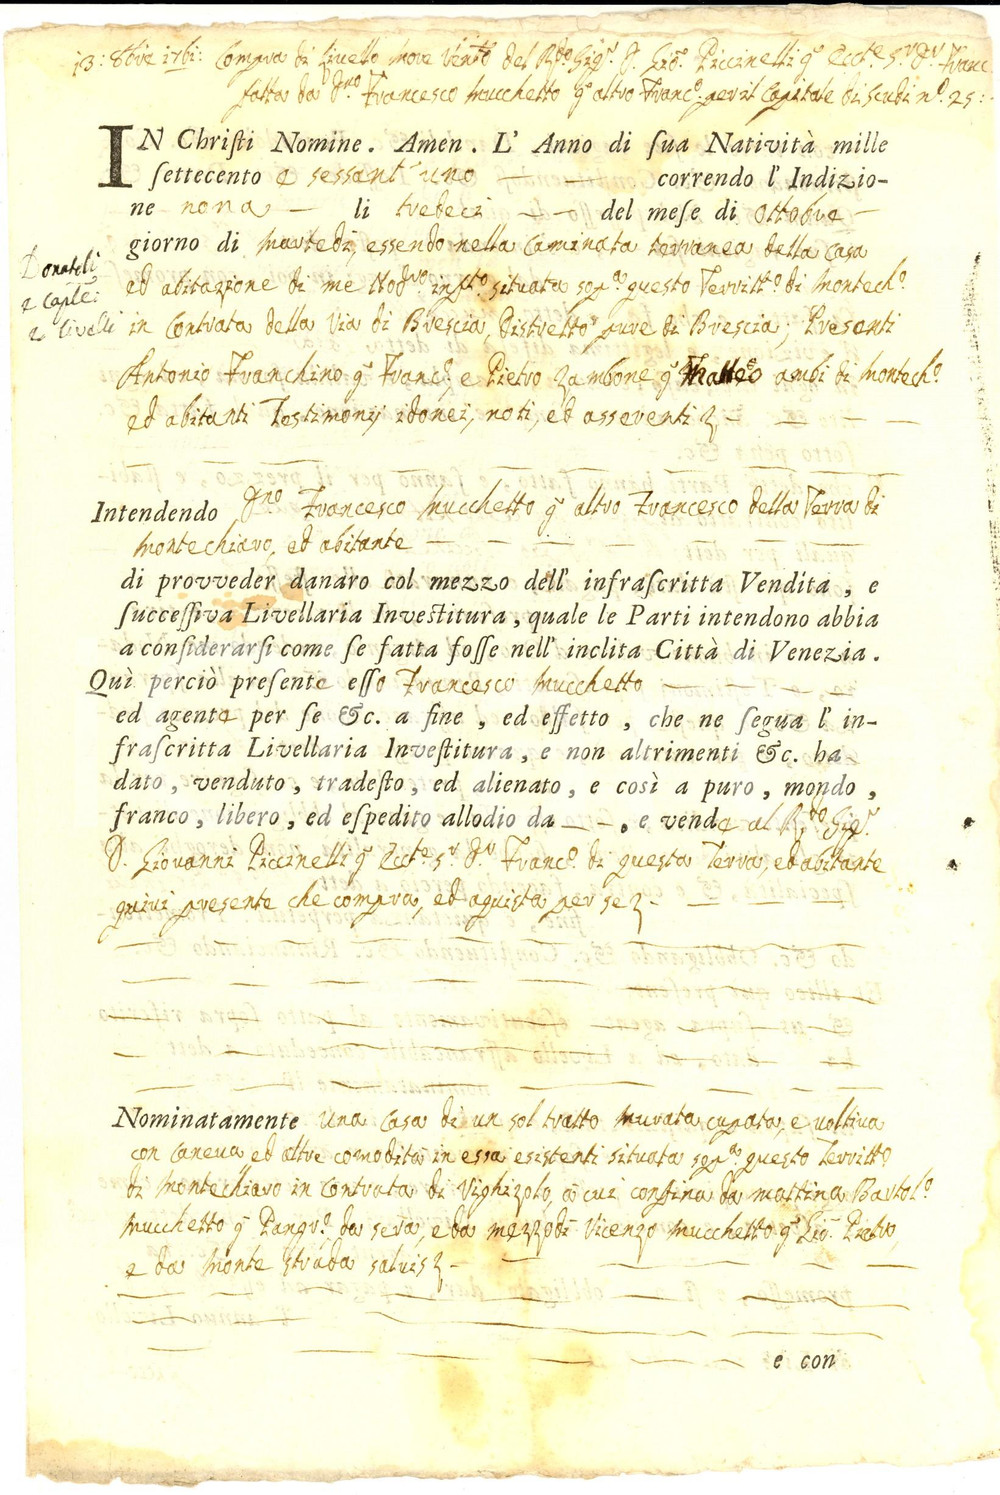 13: 8bre 1761: Compra di Livello more Veneto del Rdo Sigr. D. Gio: Piccinelli q. Ecct.e Sr. Dr. Franc
fatta da Dno Francesco Mucchetto q. altro Franc.o per il Capitale di scudi n.o 25:
IN Christi Nomine. Amen. L' Anno di sua Natività mille
settecento e sessant' uno — — correndo l' Indizio-
ne nona — li tredeci — — del mese di Ottobre —
giorno di Martedì, essendo nella Caminata terranea della Casa
Donatoli
e Caplei
e Livelli
ed abitazione di me Nodro infto situata sopa questo Territto di Montech.o
in Contrata della Via di Brescia, Distretto pure di Brescia; Presenti
Antonio Franchino q. Franc.o, e Pietro Zambone q. Matteo ambi di Montech.o
ed abitanti Testimonij idonei, noti, ed asserenti — — —
Intendendo Dno Francesco Mucchetto q. altro Francesco della Terra di
Montechiaro, ed abitante — — —
di provveder danaro col mezzo dell' infrascritta Vendita, e
successiva Livellaria Investitura, quale le Parti intendono abbia
a considerarsi come se fatta fosse nell' inclita Città di Venezia.
Quì perciò presente esso Francesco Mucchetto — — —
ed agente per se &c. a fine, ed effetto, che ne segua l' in-
frascritta Livellaria Investitura, e non altrimenti &c. ha
dato, venduto, tradesto, ed alienato, e così a puro, mondo,
franco, libero, ed espedito allodio da — —, e vende al R.do Sigr.
D. Giovanni Piccinelli q. Ecct.e Sr. Dr. Franc.o di questa Terra, ed abitante
quivi presente che compra, ed aquista per se —
Nominatamente una Casa di un sol tratto murata, cupata, e voltiva
con Caneva ed altre comodità in essa esistenti situata sopa questo Territto
di Montechiaro in Contrata di Vighizolo, à cui confina da mattina Bartol.o
Mucchetto q. Pangr.o da sera, e da mezzodì Vicenzo Mucchetto q. Gio: Pietro,
e da Monte strada salvis —
e con